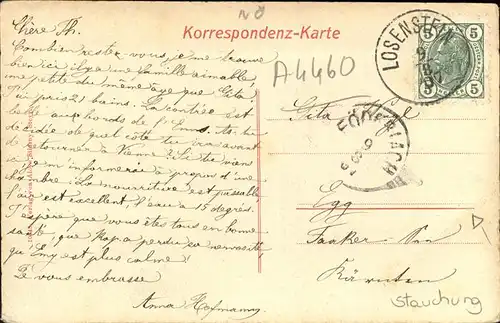 NÖ
Korrespondenz-Karte
A4460
LOSENSTEIN
5 5
5 5
Chère Th.
Combien restez-vous, je me trouve
bien ici il y a une famille aimable,
une petite du même âge que Gita,
ai pris 21 bains. La contrée est
belle aux bords de l'Enns. As-tu
décidée de quel côté tu vas avant
de tourner à Vienne? Si tu viens
je m'informerai à propos d'une
chambre. La nourriture est passable
l'air est excellent l'eau a 15 degrés.
J'espère que vous êtes tous en bonne
santé, que Papa perdu sa nervosité
qu'Emy est plus calme!
Je vous embrasse
Anna Hofmann
Gita
Egg
Faaker See
Kärnten
Stauchung